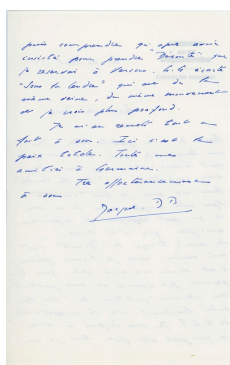 puis comprendre qu'après avoir
insisté pour prendre "          " que
je réservai à          , il écarte
"Sous la lande" qui est de la
même veine, du même mouvement
et je crois plus profond.
Je m'en remets tout à
fait à vous. Ici c'est la
paix totale. Toutes mes
amitiés à Germaine.
Très affectueusement
à vous